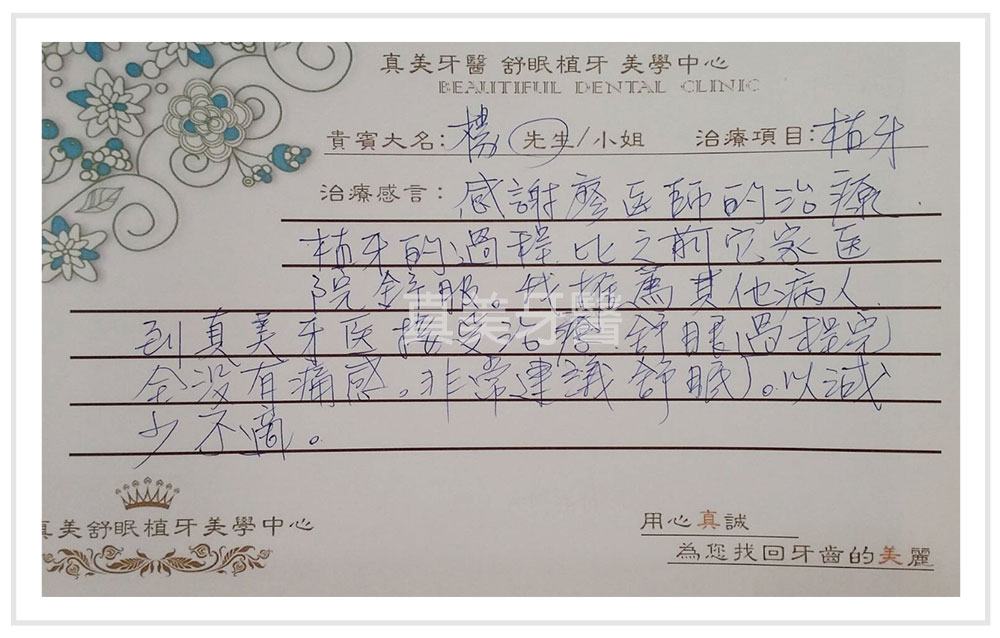 真美牙醫 舒眠植牙 美學中心
BEAUTIFUL DENTAL CLINIC
貴賓大名：楊 先生/小姐 治療項目：植牙
治療感言：感謝廖医師的治療
植牙的過程比之前它家医
院舒服。我推薦其他病人
到真美牙医接受治療 舒眠過程完
全没有痛感。非常建議舒眠)。以減
少不適。
真美牙醫
真美舒眠植牙美學中心
用心真誠
為您找回牙齒的美麗